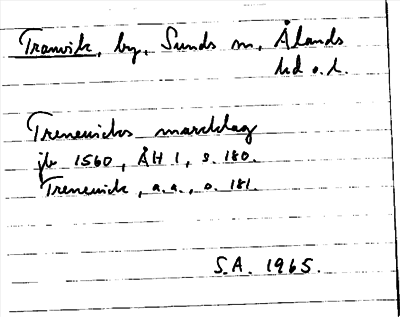 Tranvik, by, Sunds sn, Ålands
hd o. l.
Treneuicks marcklag
jb 1560, ÅH 1, s. 180.
Treneuick, a.a., s. 181.
S.A. 1965.